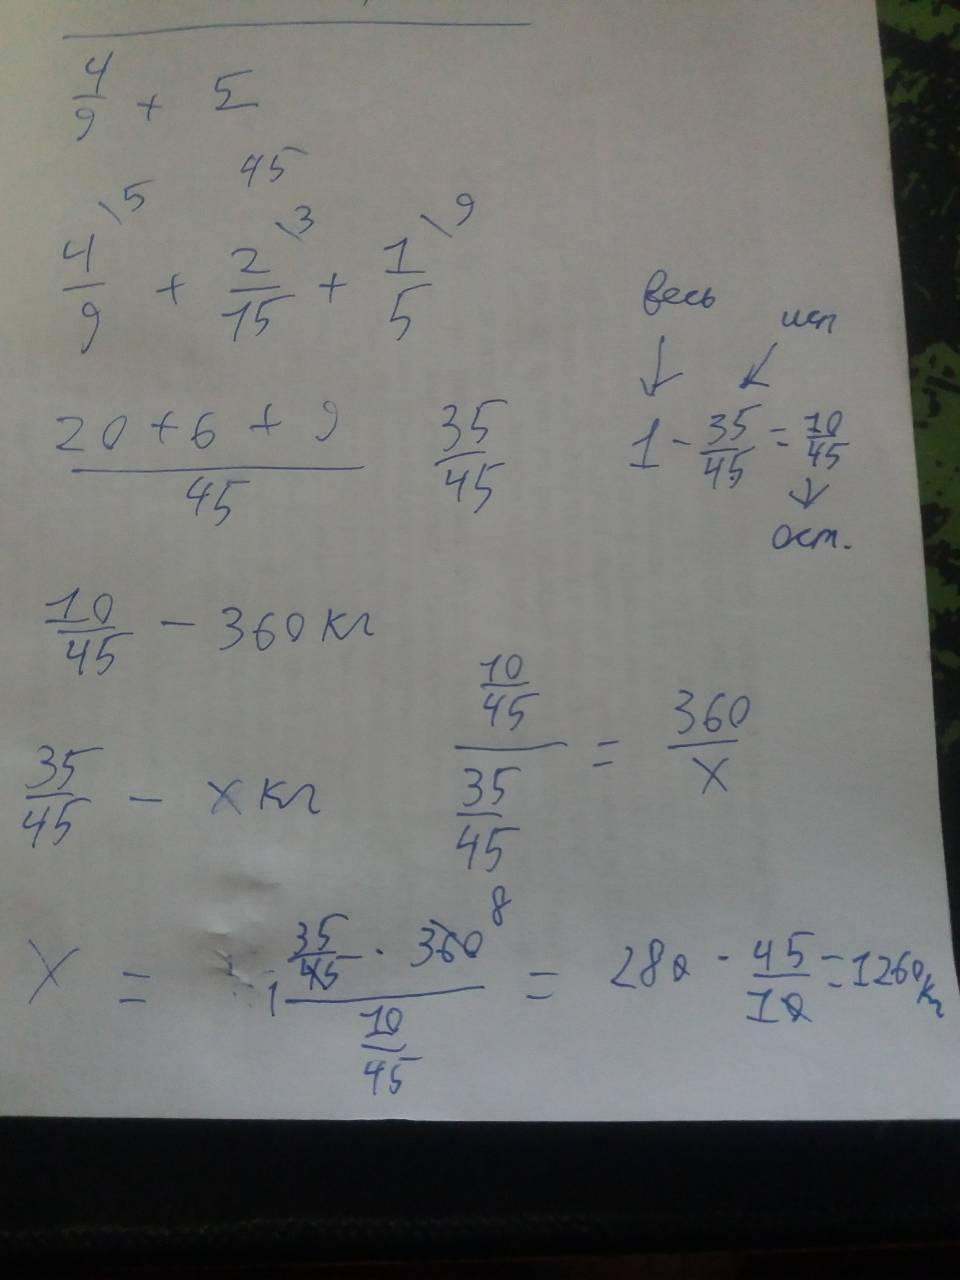 4/9 + 5
45
4/9 \5 + 2/15 \3 + 1/5 \9
весь
исп
20 + 6 + 9 / 45
35/45
1 - 35/45 = 10/45
ост.
10/45 - 360 кг
35/45 - x кг
10/45 / 35/45 = 360/x
x = 35/45 · 360 8 / 10/45 = 280 · 45/10 = 1260 кг